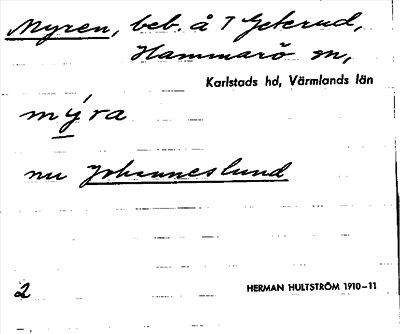 Myren, beb. å 7 Jeterud,
Hammarö sn,
Karlstads hd, Värmlands län
mýra
nu Johanneslund
2
HERMAN HULTSTRÖM 1910–11